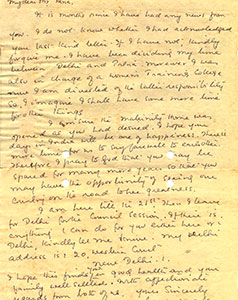 My dear Mrs.
It is months since I have had any news from
you. I do not know whether I had acknowledged
your last kind letter. If I have not, kindly
forgive me. I have been dividing my time
between Delhi and Patna. Moreover I was
also in charge of a Women's Training College
now I am divested of the latter responsibility
So, I imagine, I shall have some more time
for other things
the maternity home was
opened as you had desired. I hope your
days in India will be one of happiness. There'll
more time for me to say farewell to
Therefore, I pray to God that you may be
spared for many more years so that you
may have the opportunity of seeing our
country on the road to true greatness.
I am here till the 21st. Then I leave
for Delhi for the Council Session. If there is
anything I can do for you either here or
Delhi, kindly let me know. My Delhi
address is: 20, Court
New Delhi. 1.
I hope this finds you in good health and your
family well settled. With affectionate
regards from both of us, yours sincerely